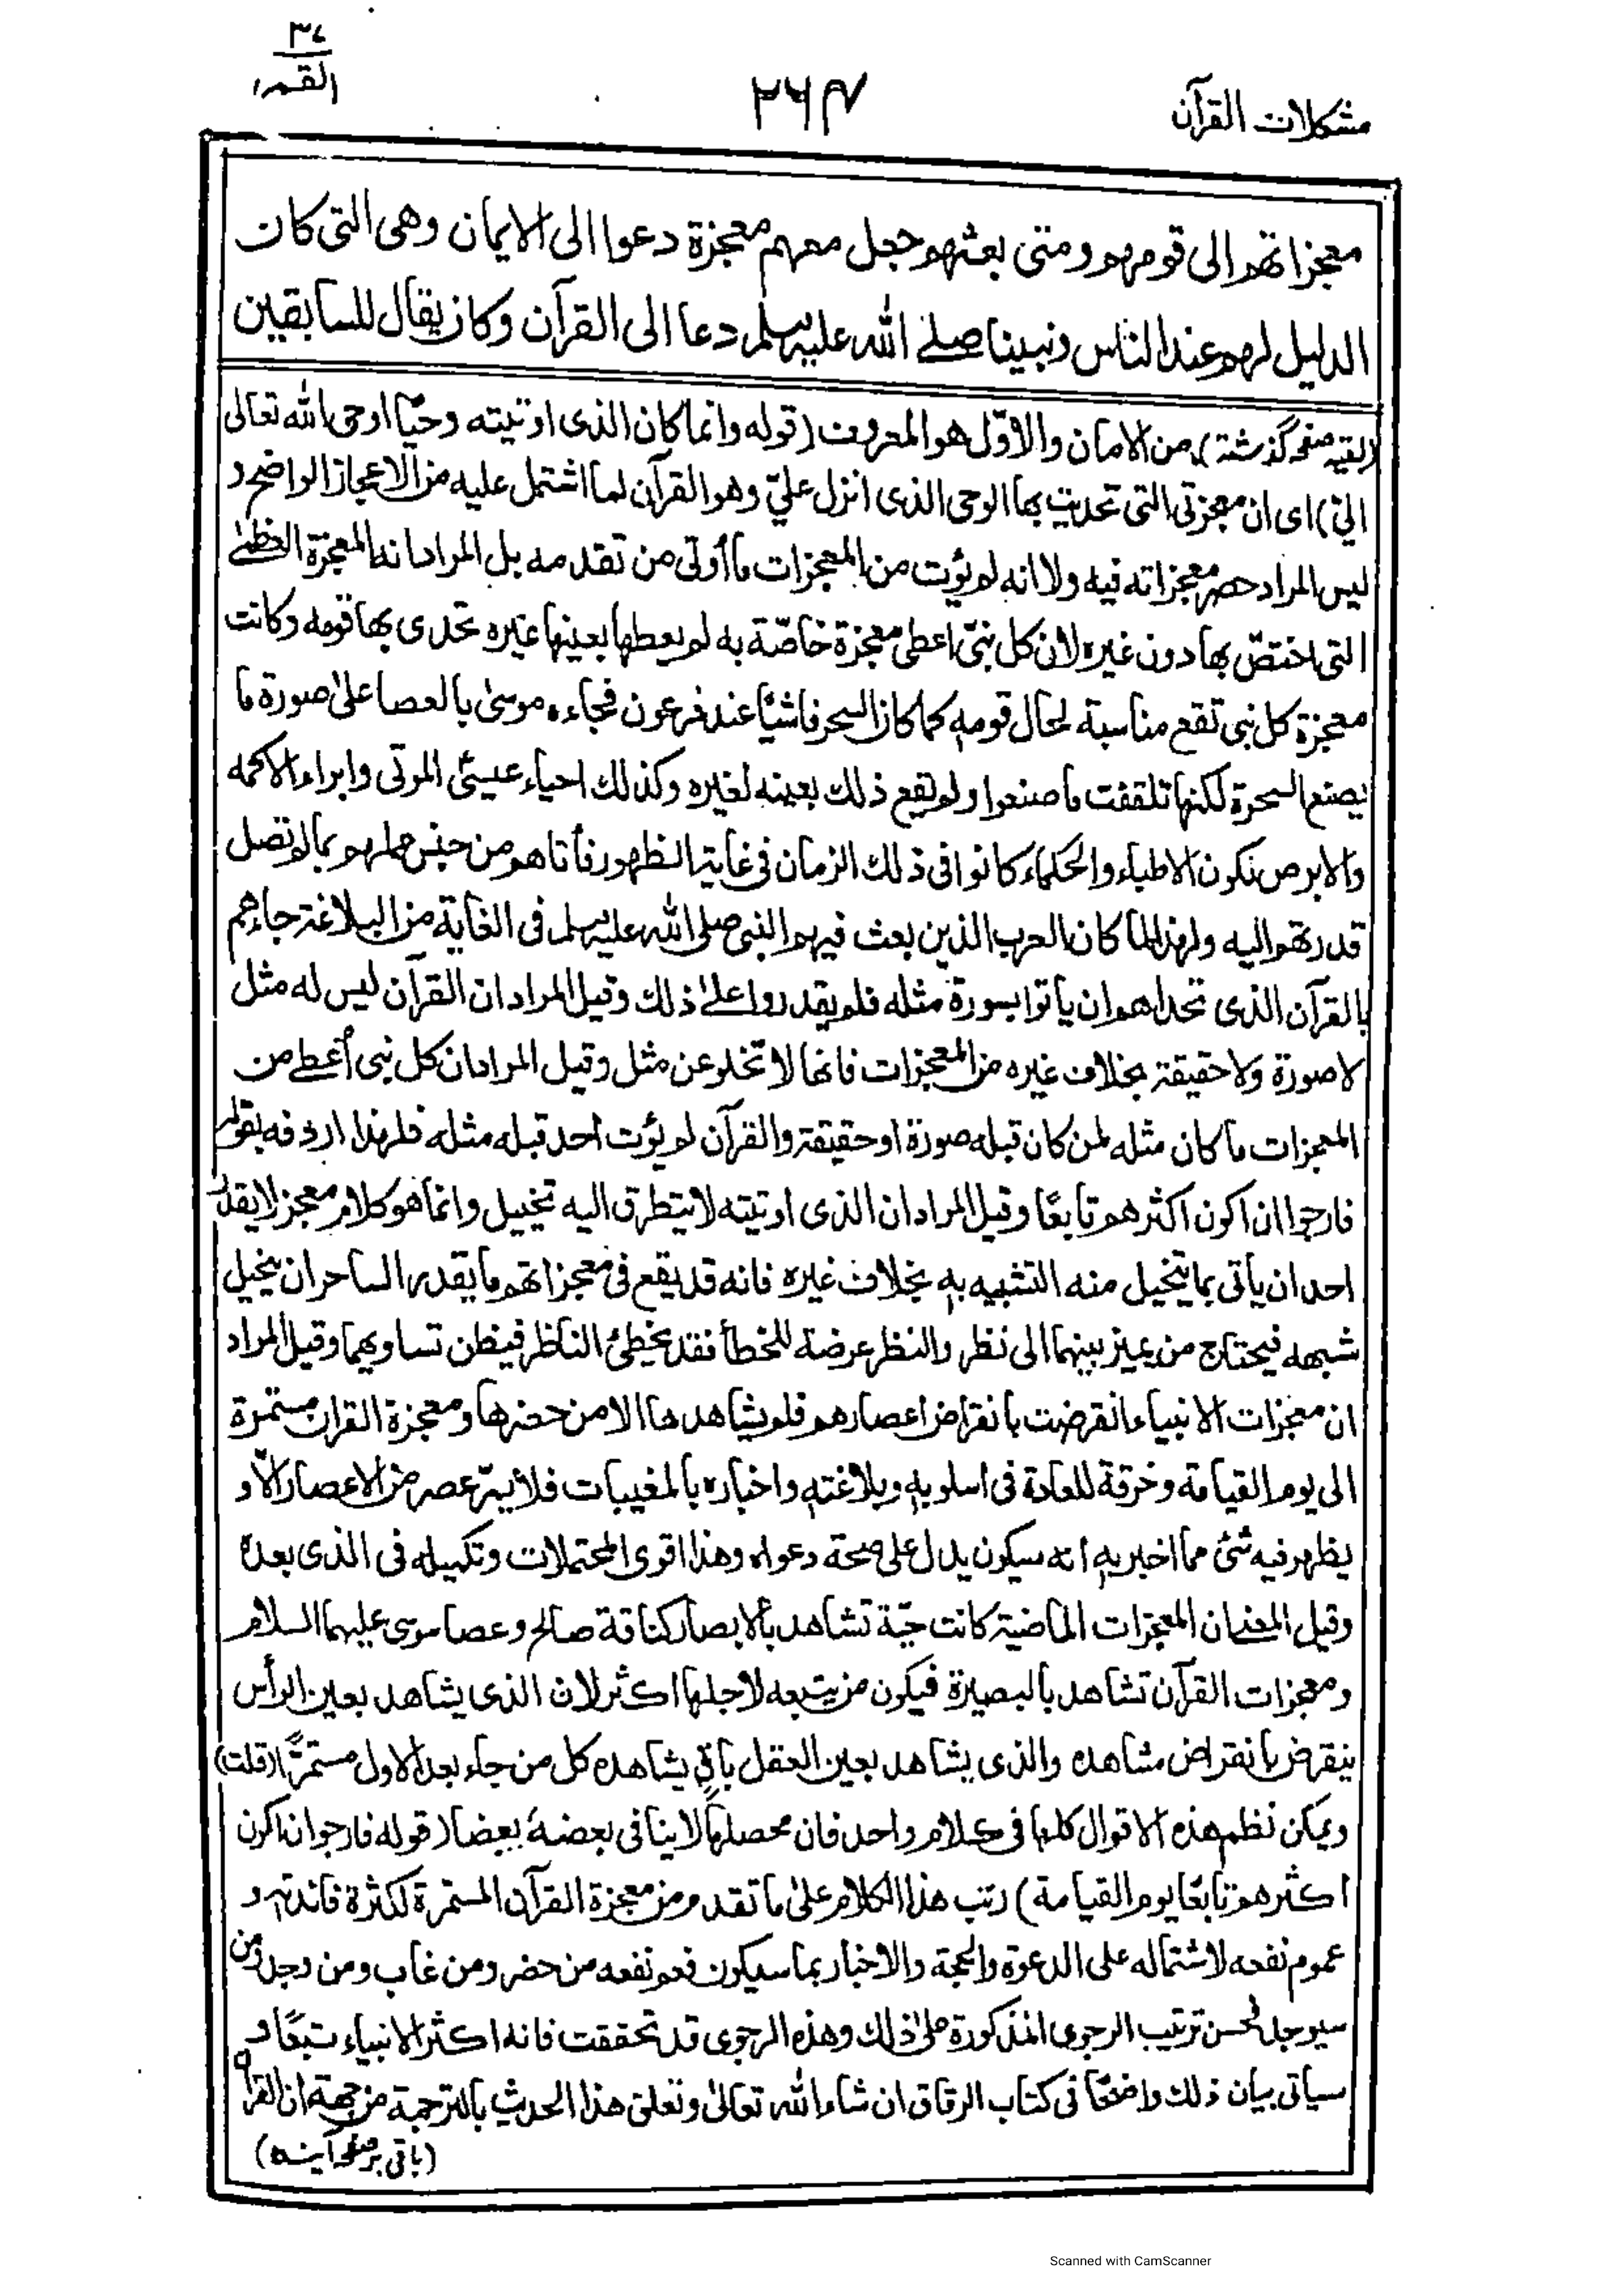 مشكلات القرآن
٢٦٤
القمر
معجزاتهم الى قومهم ومتى بعثهم جعل معهم معجزة دعوا الى الايمان وهى التى كان
الدليل لهم عند الناس ونبينا صلے الله عليه وسلم دعا الى القرآن وكان يقال للسابقين
(بقيه صفحه گذشتة) من الامان والاوّل هو المعروف (قوله وانما كان الذى اوتيته وحيًا اوحى الله تعالى
الىّ) اى ان معجزتى التى تحديت بها الوحى الذى انزل علىّ وهو القرآن لما اشتمل عليه من الاعجاز الواضح و
ليس المراد حصر معجزاته فيه ولا انه لم يؤت من المعجزات ما أوتى من تقدمه بل المراد انه المعجزة العظمٰے
التى اختصّ بها دون غيره لان كل نبىّ اعطى معجزة خاصّة به لم يعطها بعينها غيره تحدى بها قومه وكانت
معجزة كل نبى تقع مناسبة لحال قومه كما كان السحر فاشيًا عند فرعون فجاءه موسىٰ بالعصا علىٰ صورة ما
يصنع السحرة لكنها تلقفت ما صنعوا ولم يقع ذلك بعينه لغيره وكذلك احياء عيسىٰ الموتى وابراء الاكمه
والابرص لكون الاطباء والحكماء كانوا فى ذلك الزمان فى غاية الظهور فأتاهم من جنس عملهم بما لم تصل
قدرتهم اليه ولهذا لما كان العرب الذين بعث فيهم النبى صلى الله عليه وسلم فى الغاية من البلاغة جاءهم
بالقرآن الذى تحداهم ان يأتوا بسورة مثله فلم يقدروا علےٰ ذلك وقيل المراد ان القرآن ليس له مثل
لا صورة ولا حقيقة بخلاف غيره من المعجزات فانها لا تخلو عن مثل وقيل المراد ان كل نبى أعطے من
المعجزات ما كان مثله لمن كان قبله صورة او حقيقة والقرآن لم يؤت احد قبله مثله فلهذا اردفه بقوله
فارجوا ان اكون اكثرهم تابعًا وقيل المراد ان الذى اوتيته لا يتطرق اليه تخييل وانما هو كلام معجز لا يقدر
احد ان يأتى بما يتخيل منه التشبيه به بخلاف غيره فانه قد يقع فى معجزاتهم ما يقدر الساحر ان يخيل
شبهه فيحتاج من يميز بينهما الى نظر والنظر عرضة للخطأ فقد يخطئ الناظر فيظن تساويهما وقيل المراد
ان معجزات الانبياء انقرضت بانقراض اعصارهم فلم يشاهدها الا من حضرها ومعجزة القران مستمرة
الى يوم القيامة وخرقة للعادة فى اسلوبه وبلاغته واخباره بالمغيبات فلا يمرّ عصر من الاعصار الّا و
يظهر فيه شئ مما اخبر به انه سيكون يدل على صحة دعواه وهذا اقوى المحتملات وتكميله فى الذى بعده
وقيل المعنى ان المعجزات الماضية كانت حسّية تشاهد بالابصار كناقة صالح وعصا موسى عليهما السلام
ومعجزات القرآن تشاهد بالبصيرة فيكون من يتبعه لاجلها اكثر لان الذى يشاهد بعين الرأس
ينقرض بانقراض مشاهده والذى يشاهد بعين العقل باقٍ يشاهده كل من جاء بعد الاول مستمرًّا (قلت)
ويمكن نظم هذه الاقوال كلها فى كلام واحد فان محصلها لا ينافى بعضه بعضا (قوله فارجوا ان اكون
اكثرهم تابعًا يوم القيامة) رتب هذا الكلام علىٰ ما تقدم من معجزة القرآن المستمرة لكثرة فائدته و
عموم نفعه لاشتماله على الدعوة والحجة والاخبار بما سيكون فعم نفعه من حضر ومن غاب ومن وجد ومن
سيوجد فحسن ترتيب الرجوى المذكورة علىٰ ذلك وهذه الرجوى قد تحققت فانه اكثر الانبياء تبعًا و
سياتى بيان ذلك واضحًا فى كتاب الرقاق ان شاء الله تعالىٰ وتعلق هذا الحديث بالترجمة من جهة ان القرآن
(باقى بر صفحه آينده)
Scanned with CamScanner